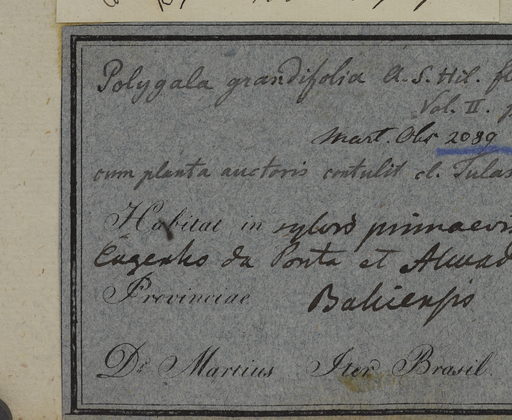 Polygala grandifolia A. S. Hil. fl
Vol. II. p
Mart. Obs 2089
cum planta auctoris contulit cl. Tulas
Habitat in sylvis primaevis
Engenho da Ponta et Almad
Provinciae Bahiensis
Dr. Martius Iter Brasil.